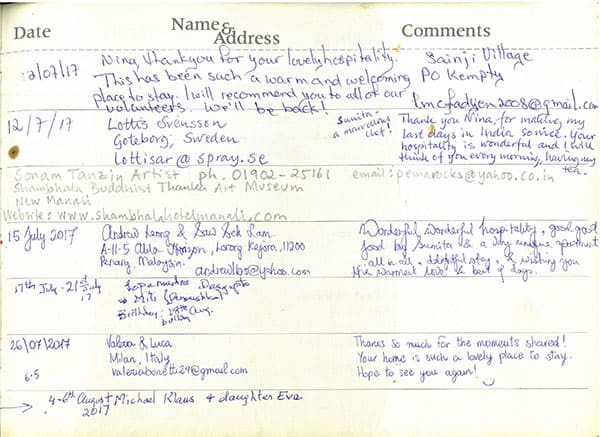 Date
Name &
Address
Comments
12/07/17
Nina, thankyou for your lovely hospitality.
This has been such a warm and welcoming
place to stay. I will recommend you to all of our
volunteers. We'll be back!
Sainji Village
PO Kempty
lmcfadyen2008@gmail.com
12/7/17
Lottis Svensson
Goteborg, Sweden
Lottisar@spray.se
Sunita -
a marvellous
chef!
Thank you Nina, for making my
last days in India so nice. Your
hospitality is wonderful and I will
think of you every morning, having my
tea.
Sonam Tanzin Artist ph. 01902-25161 email: pemarocks@yahoo.co.in
Shambhala Buddhist Thanka Art Museum
New Manali
Website: www.shambhalahotelmanali.com
15 July 2017
Andrew Leong &
A-11-5 Horizon, Lorong Kejora, 11200
Penang, Malaysia.
andrewlbs@yahoo.com
Wonderful wonderful hospitality, good good
food by Sunita & a very unique apartment
all in all, delightful stay, & wishing you
the warmest love & best of days.
17th July - 21st July
17
Dasgupta
→ Miti
Birthday: 18th Aug.
26/07/2017
6.5
Valeria & Luca
Milan, Italy
valeriabonetti29@gmail.com
Thanks so much for the moments shared!
Your home is such a lovely place to stay.
Hope to see you again!
→ 4-6th August Michael Klaus + daughter Eva
2017